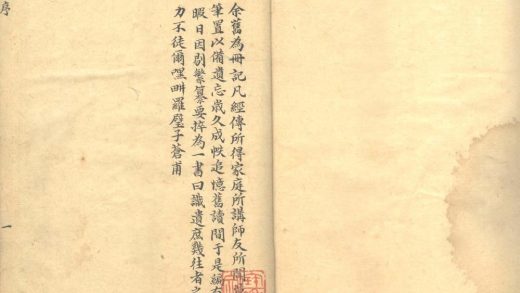 余舊為冊記凡經傳所得家庭所講師友所聞
筆置以備遺忘歲久成帙追憶舊讀間于是編
暇日因剔繁纂要捽為一書曰識遺庶幾往者之
力不徒爾嘿畊羅璧子蒼甫
序 一